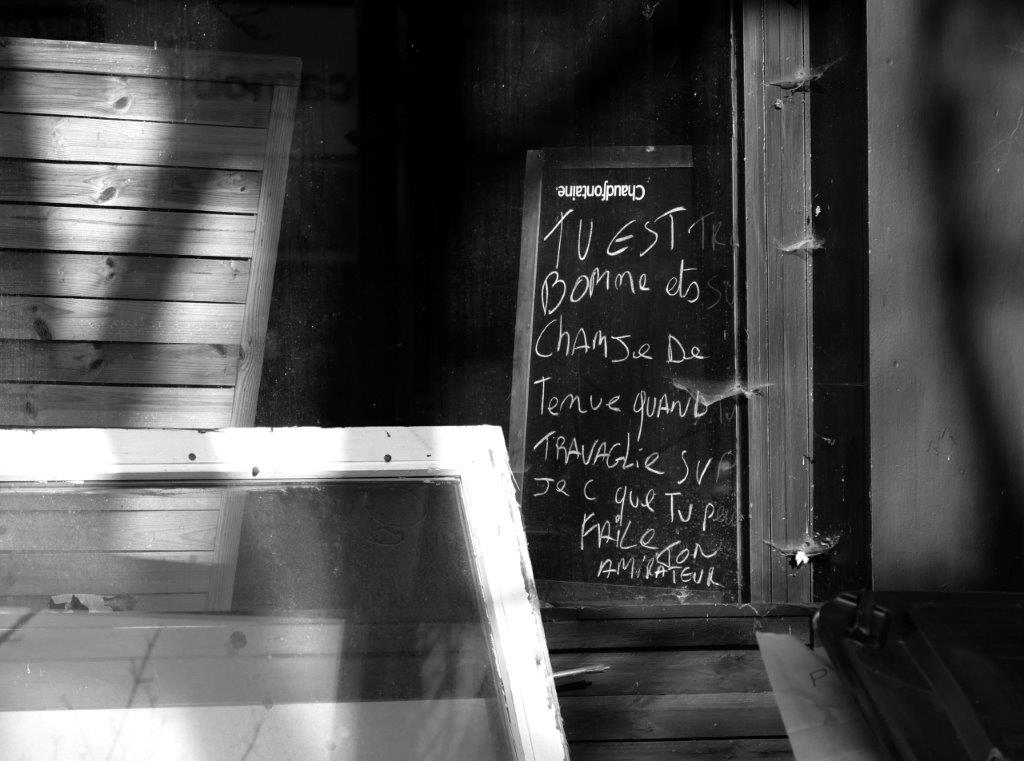 Chaudfontaine.
TU EST TR
BOMME ets su
CHAMJe De
Tenue QUAND
TRAVAGLie SUR
Je C que TU peu
FAILe TON
AMIRATEUR
P